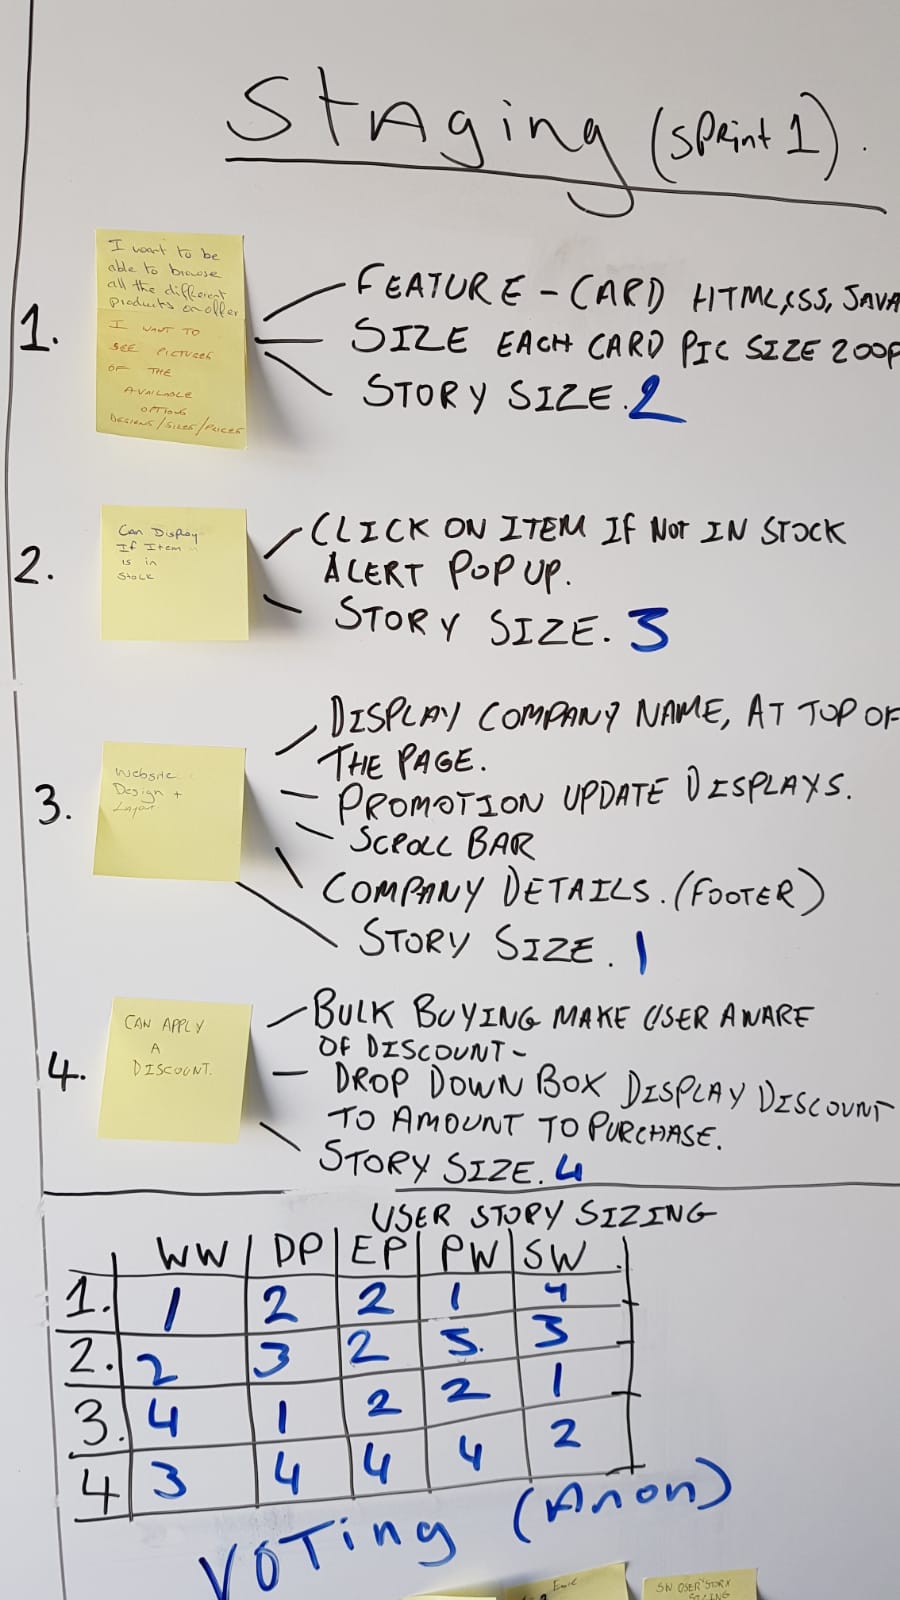 Staging (Sprint 1).
1.
I want to be
able to browse
all the different
products on offer
I WANT TO
SEE PICTURES
OF THE
AVAILABLE
OPTIONS
DESIGNS/SIZES/PRICES
FEATURE - CARD HTML, CSS, JAVA
SIZE EACH CARD PIC SIZE 200P
STORY SIZE. 2
2.
Can Display
If Item
is in
Stock
CLICK ON ITEM IF NOT IN STOCK
ALERT POP UP.
STORY SIZE. 3
3.
Website
Design +
Layout
DISPLAY COMPANY NAME, AT TOP OF
THE PAGE.
PROMOTION UPDATE DISPLAYS.
SCROLL BAR
COMPANY DETAILS. (FOOTER)
STORY SIZE. 1
4.
CAN APPLY
A
DISCOUNT.
BULK BUYING MAKE USER AWARE
OF DISCOUNT -
DROP DOWN BOX DISPLAY DISCOUNT
TO AMOUNT TO PURCHASE.
STORY SIZE. 4
USER STORY SIZING
WW DP EP PW SW
1. 1 2 2 1 4
2. 2 3 2 3. 3
3. 4 1 2 2 1
4 3 4 4 4 2
VOTing (Anon)
SW USER STORY